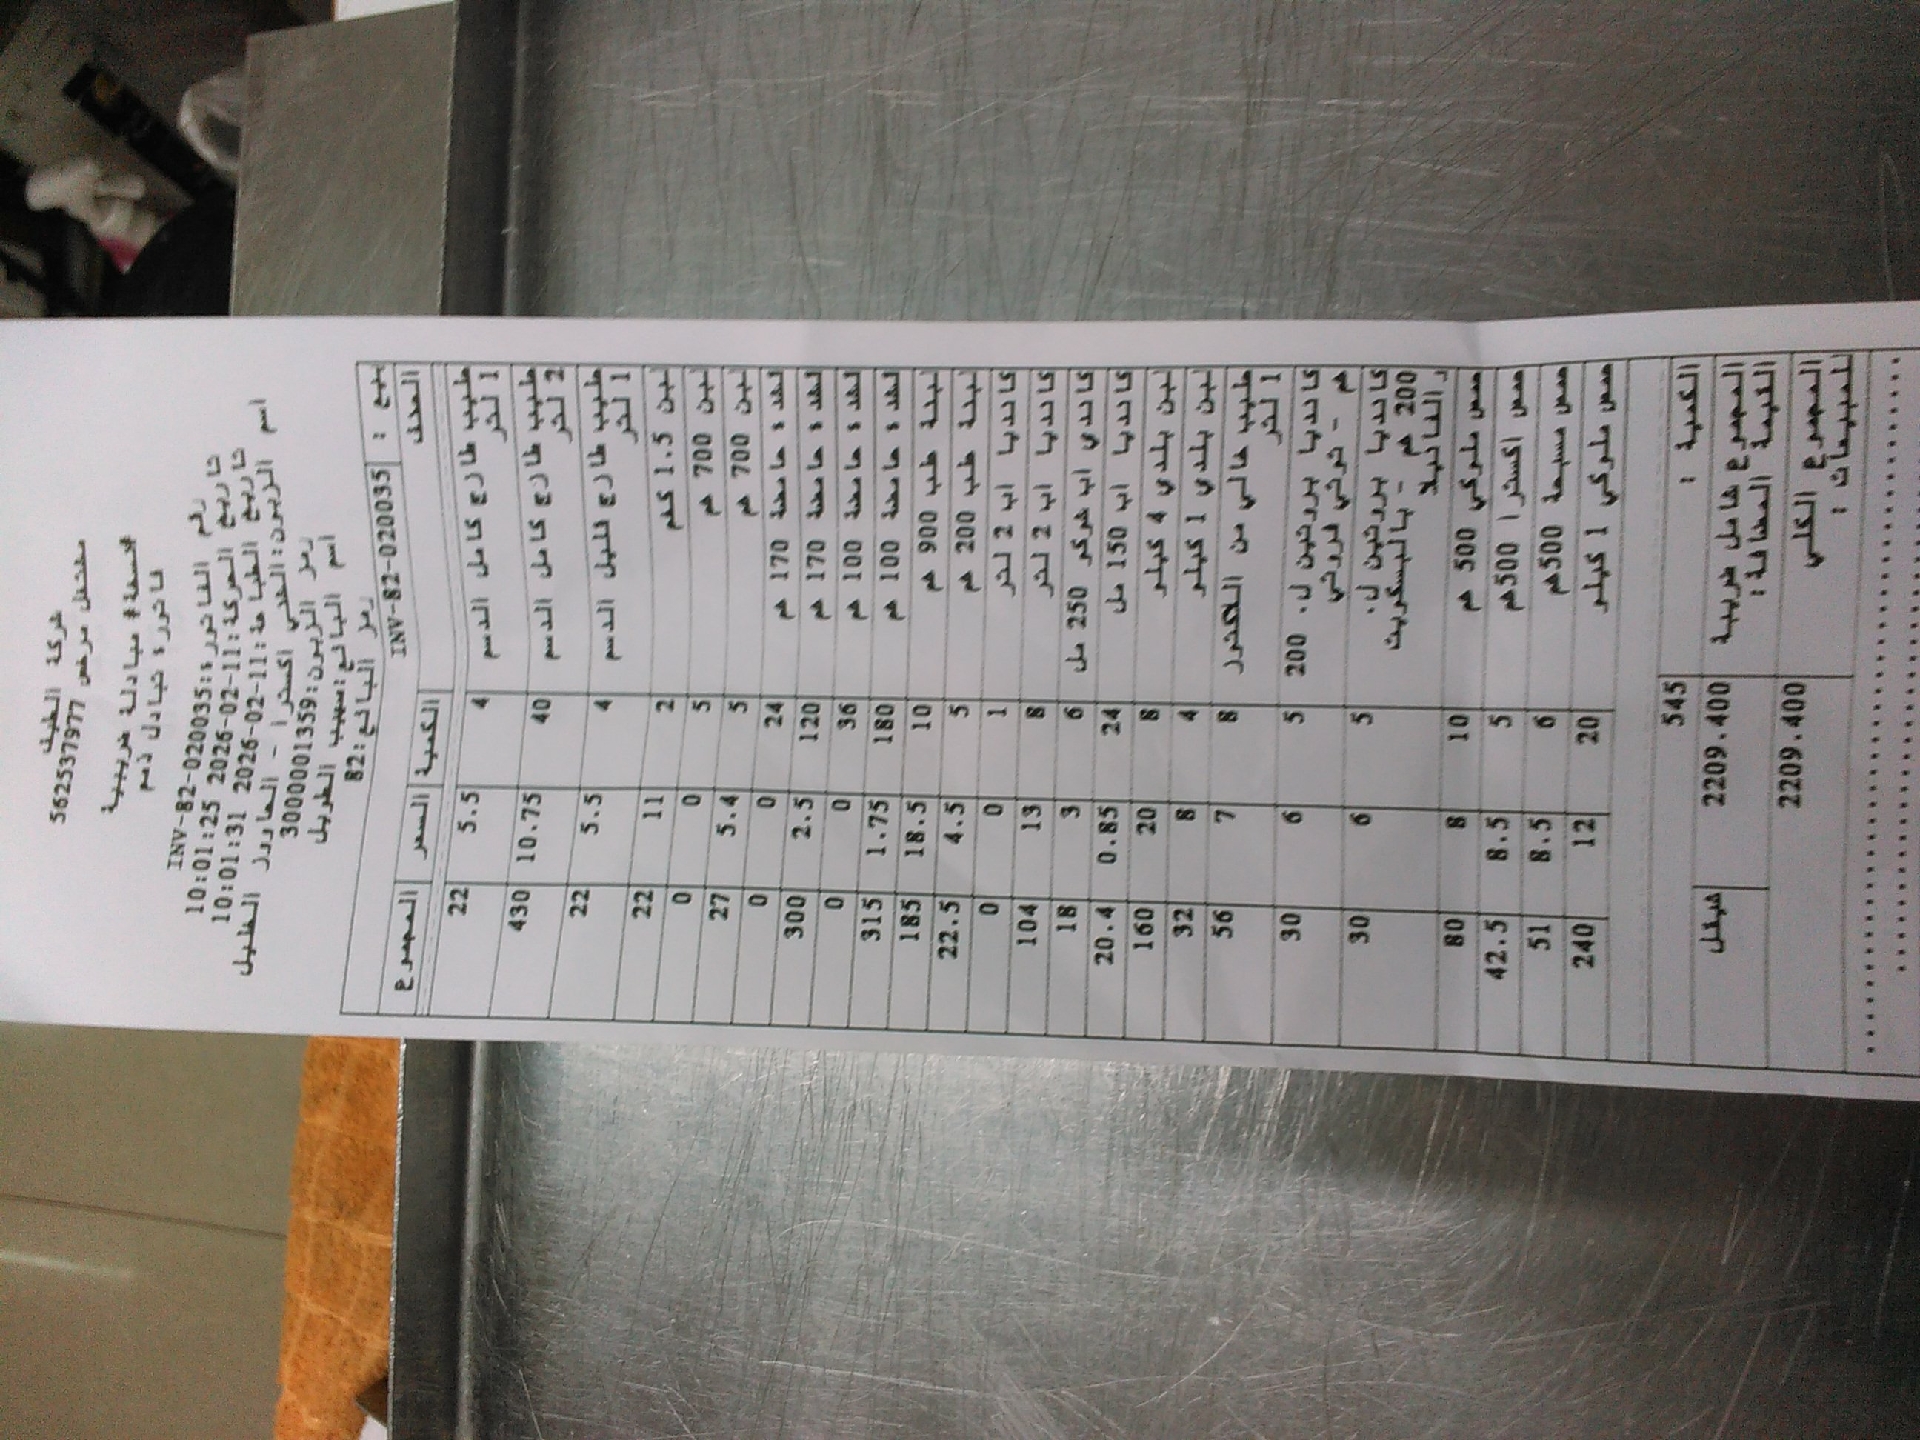 شركة الطيف
مشتغل مرخص 562537977
#نسخة# مبادلة ضريبية
فاتورة تبادل ذمم
رقم الفاتورة:INV-82-020035
تاريخ الحركة:2026-02-11 10:01:25
تاريخ الطباعة:2026-02-11 10:01:31
اسم الزبون:القدي اكسترا - الخليل
رمز الزبون:30000001359
اسم البائع:صهيب الطويل
رمز البائع:82
بيع : INV-82-020035
الصنف الكمية السعر المجموع
حليب طازج كامل الدسم 1 لتر 4 5.5 22
حليب طازج كامل الدسم 2 لتر 40 10.75 430
حليب طازج قليل الدسم 1 لتر 4 5.5 22
لبن 1.5 كغم 2 11 22
لبن 700 غم 5 0 0
لبن 700 غم 5 5.4 27
170 غم 24 0 0
170 غم 120 2.5 300
100 غم 36 0 0
100 غم 180 1.75 315
لبنة علب 900 غم 10 18.5 185
لبنة علب 200 غم 5 4.5 22.5
كانديا اب 2 لتر 1 0 0
كانديا اب 2 لتر 8 13 104
كاندي اب شوكو 250 مل 6 3 18
كانديا اب 150 مل 24 0.85 20.4
لبن بلدي 4 كيلو 8 20 160
لبن بلدي 1 كيلو 4 8 32
حليب خالي من اللاكتوز 1 لتر 8 7 56
كانديا بروتين ل. 200 غم - توتي فروتي 5 6 30
كانديا بروتين ل. 200 غم - بالبسكويت والفانيلا 5 6 30
حمص ملوكي 500 غم 10 8 80
حمص اكسترا 500غم 5 8.5 42.5
حمص مسبحة 500غم 6 8.5 51
حمص ملوكي 1 كيلو 20 12 240
الكمية : 545
المجموع شامل ضريبة القيمة المضافة : 2209.400 شيقل
المجموع الكلي 2209.400
توقيعات :